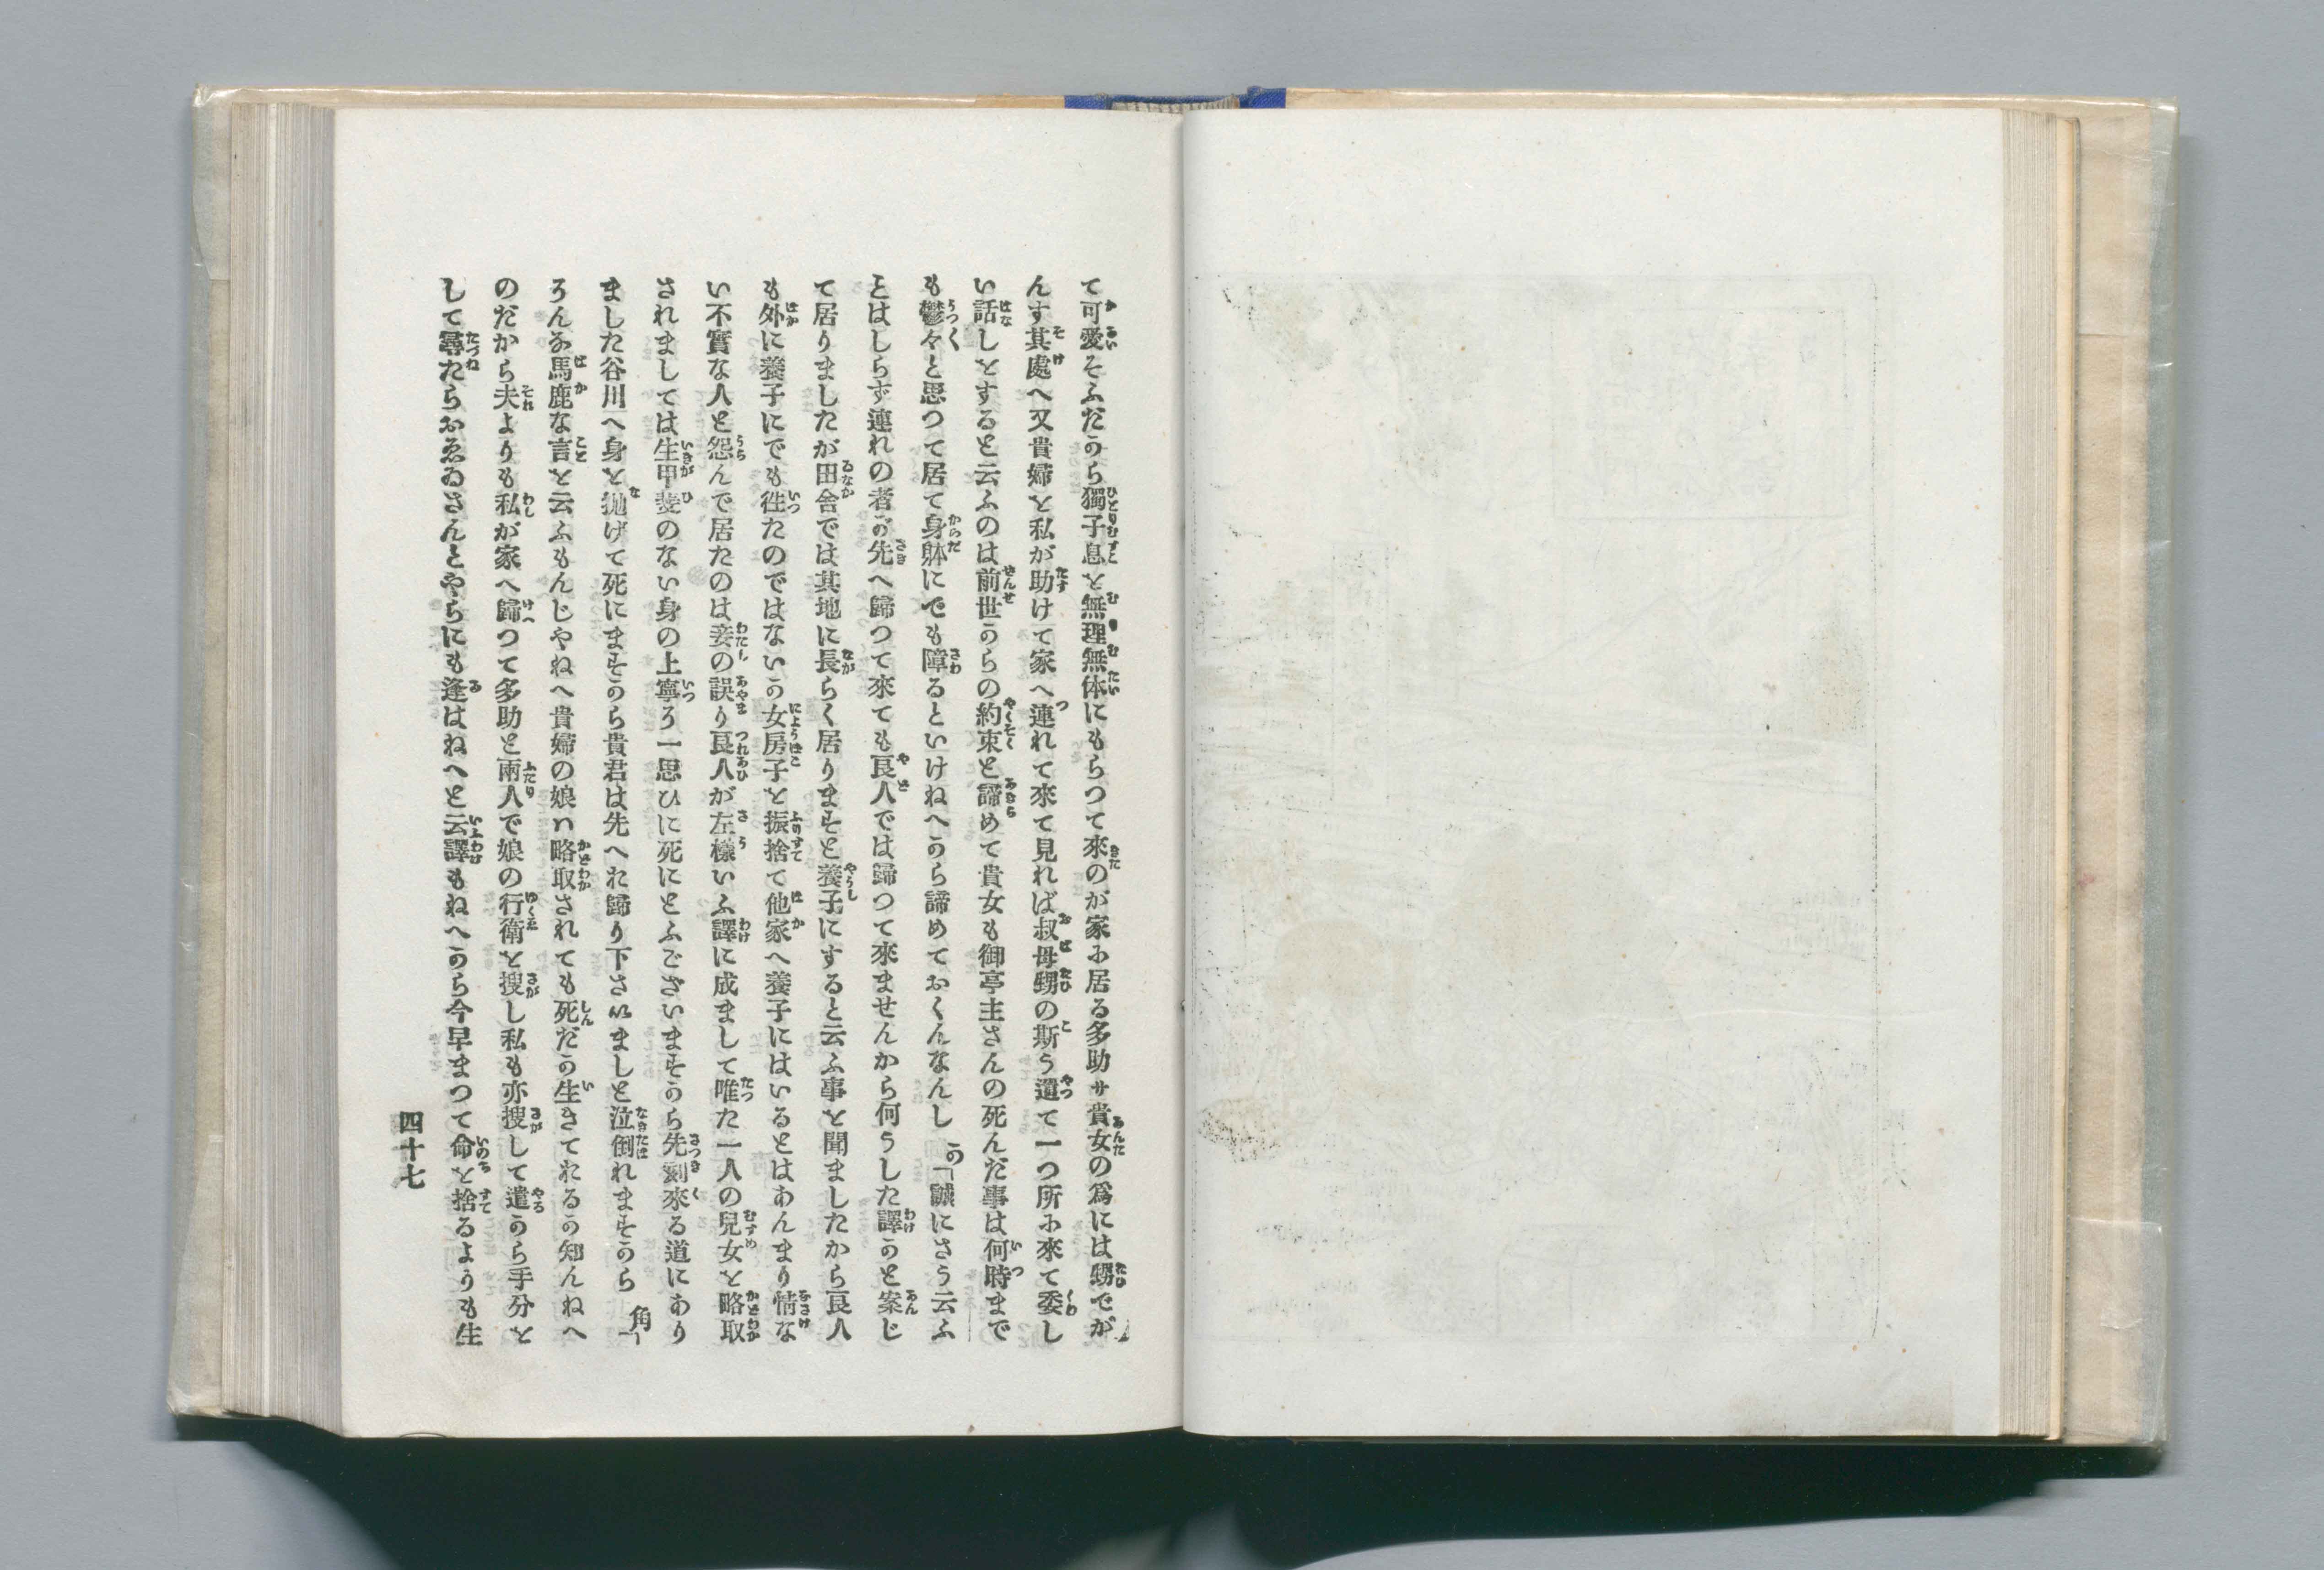 て可愛そふだから獨子息を無理無体にもらつて來のが家に居る多助サ貴女の爲には甥でが
んす其處へ又貴婦と私が助けて家へ連れて來て見れば叔母甥の斯う遺て一つ所に來て委し
い話しをすると云ふのは前世からの約束と諦めて貴女も御亭主さんの死んだ事は何時まで
も鬱々と思つて居て身躰にでも障るといけねへから諦めておくんなんし かの「誠にさう云ふ
ことはしらず連れの者が先へ歸つて來ても良人では歸つて來ませんから何うした譯かと案じ
て居りましたが田舎では其地に長らく居りますと養子にすると云ふ事を聞ましたから良人
も外に養子にでも徃たのではないか女房子を振捨て他家へ養子にはいるとはあんまり情な
い不實な人と怨んで居たのは妾の誤り良人が左樣いふ譯に成まして唯た一人の兒女を略取
されましては生甲斐のない身の上寧ろ一思ひに死にとふございますから先刻來る道にあり
ました谷川へ身を抛げて死にますから貴君は先へお歸り下さいましと泣倒れますから 角「
ろんな馬鹿な言を云ふもんじやねへ貴婦の娘ハ略取されても死だか生きておるか知んねへ
のだから夫よりも私が家へ歸つて多助と兩人で娘の行衛を搜し私も亦搜して遣から手分を
して尋たらおゑゐさんとやらにも逢はねへと云譯もねへから今早まつて命を捨るよりも生
四十七